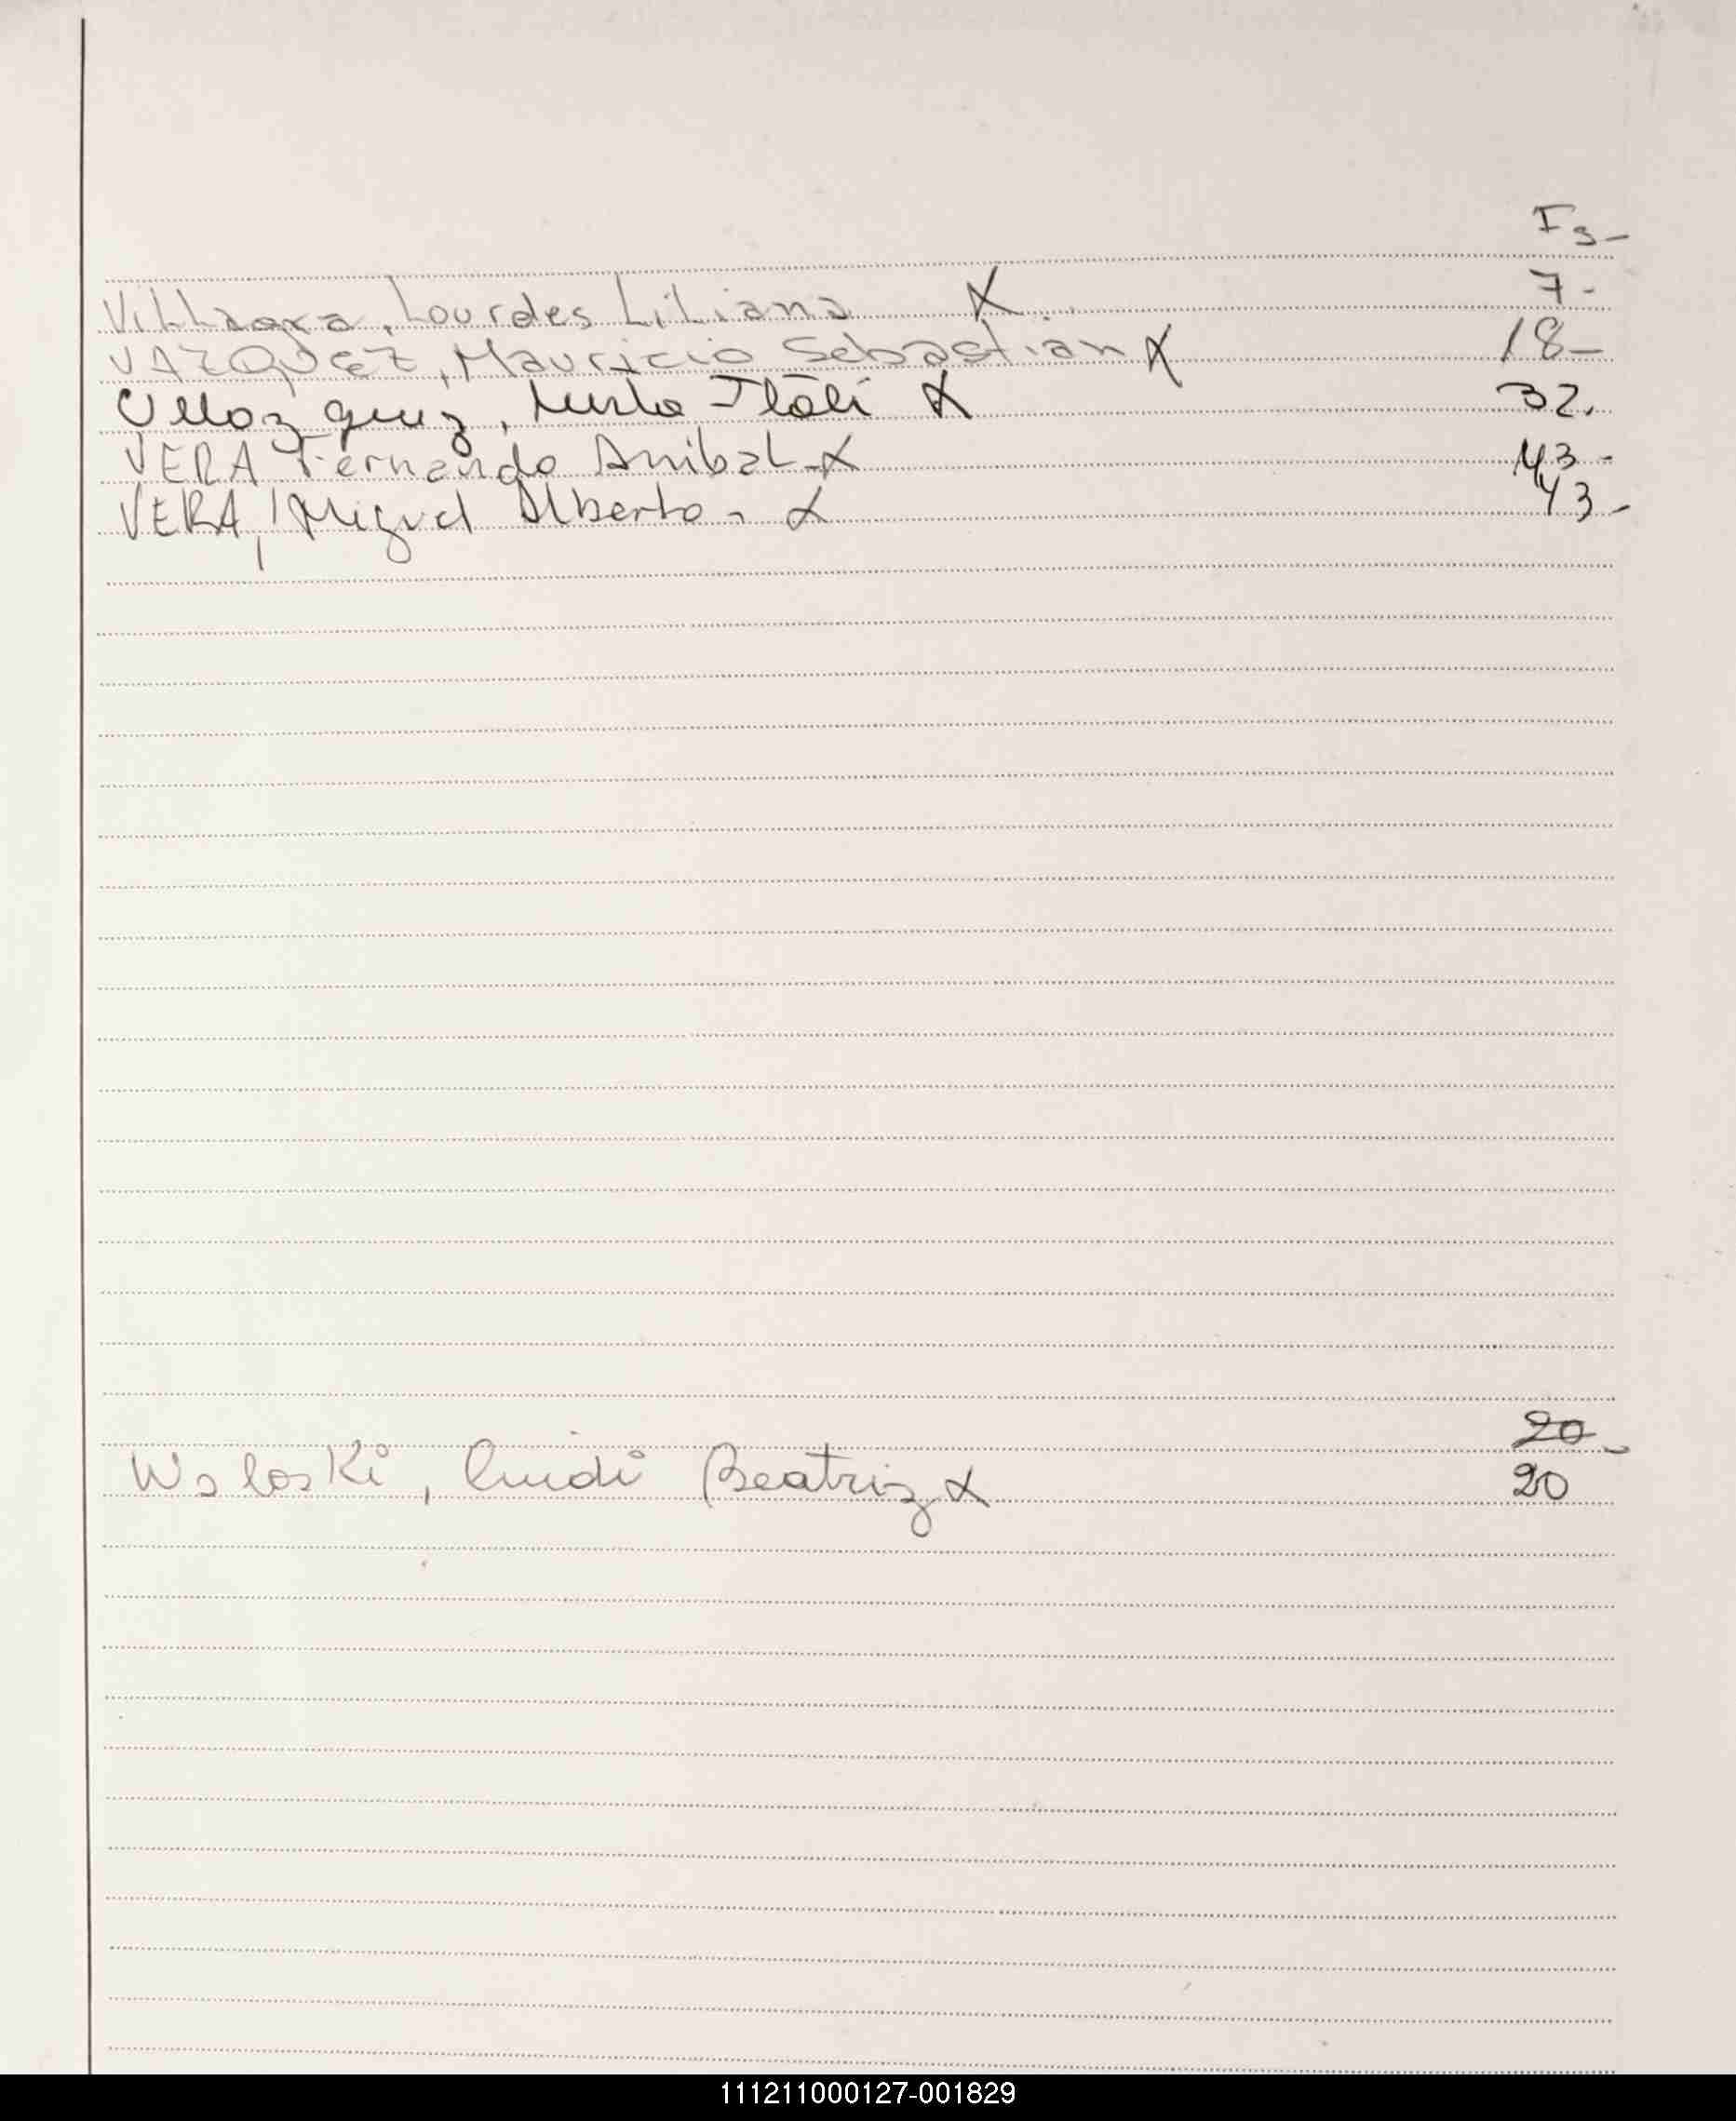 Fs-
Villagra, Lourdes Liliana X 7-
VAZQUEZ, Mauricio Sebastian X 18-
Mirta Itatí X 32.
VERA Fernando Anibal - X 43-
VERA, Miguel Alberto - X 43-
20-
Woloski, Beatriz X 20
111211000127-001829